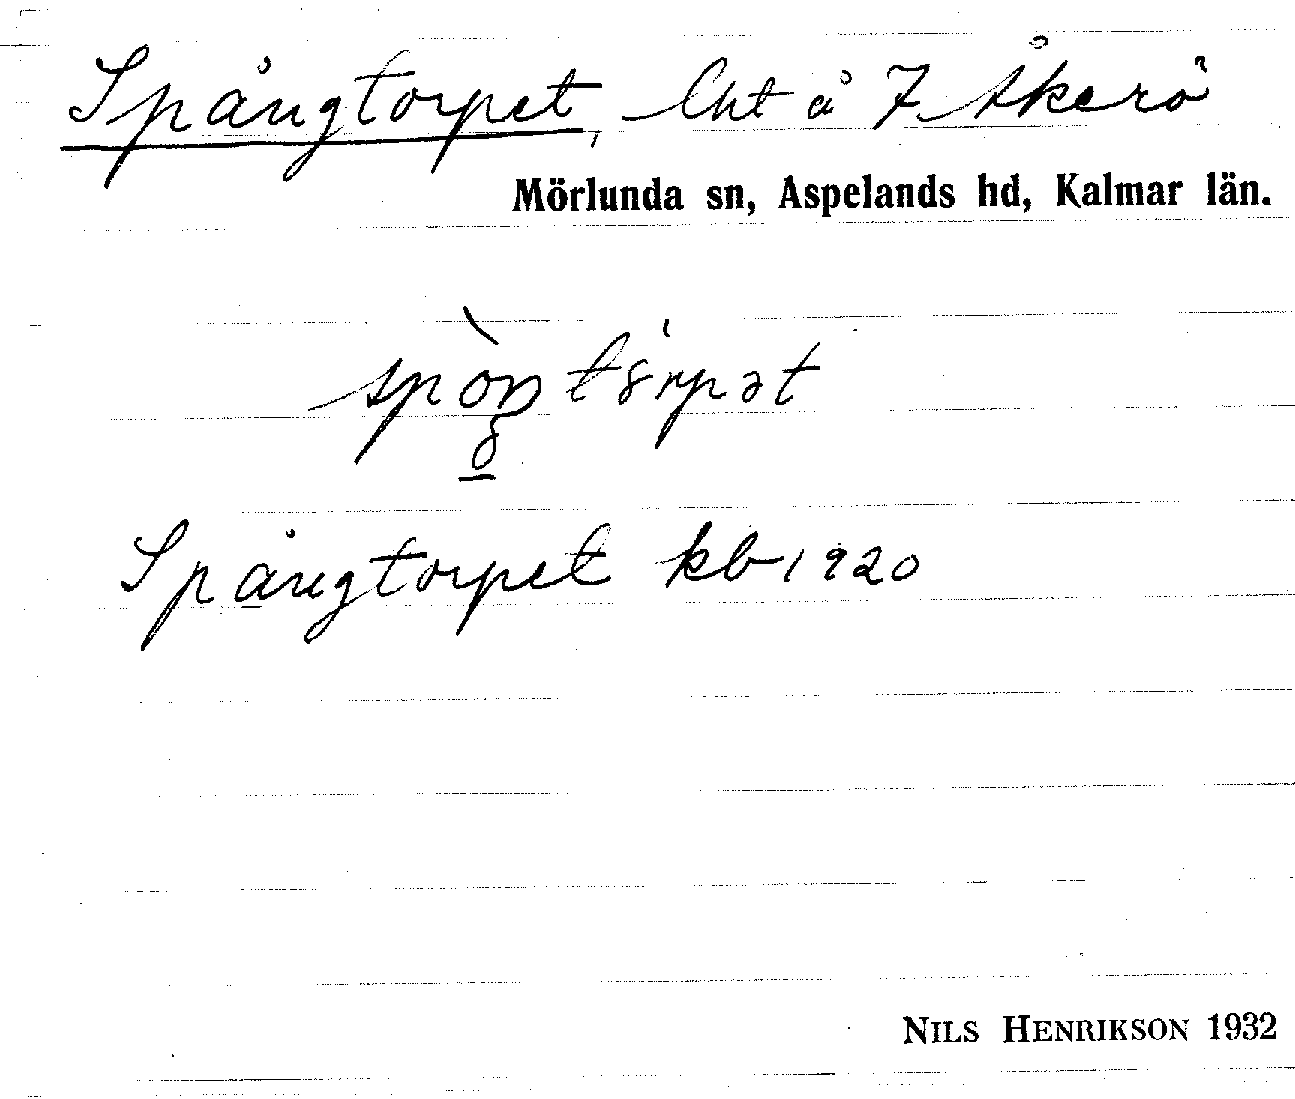 Spångtorpet, lht å 7 Åkerö
Mörlunda sn, Aspelands hd, Kalmar län.
Spångtorpet kb 1920
NILS HENRIKSON 1932